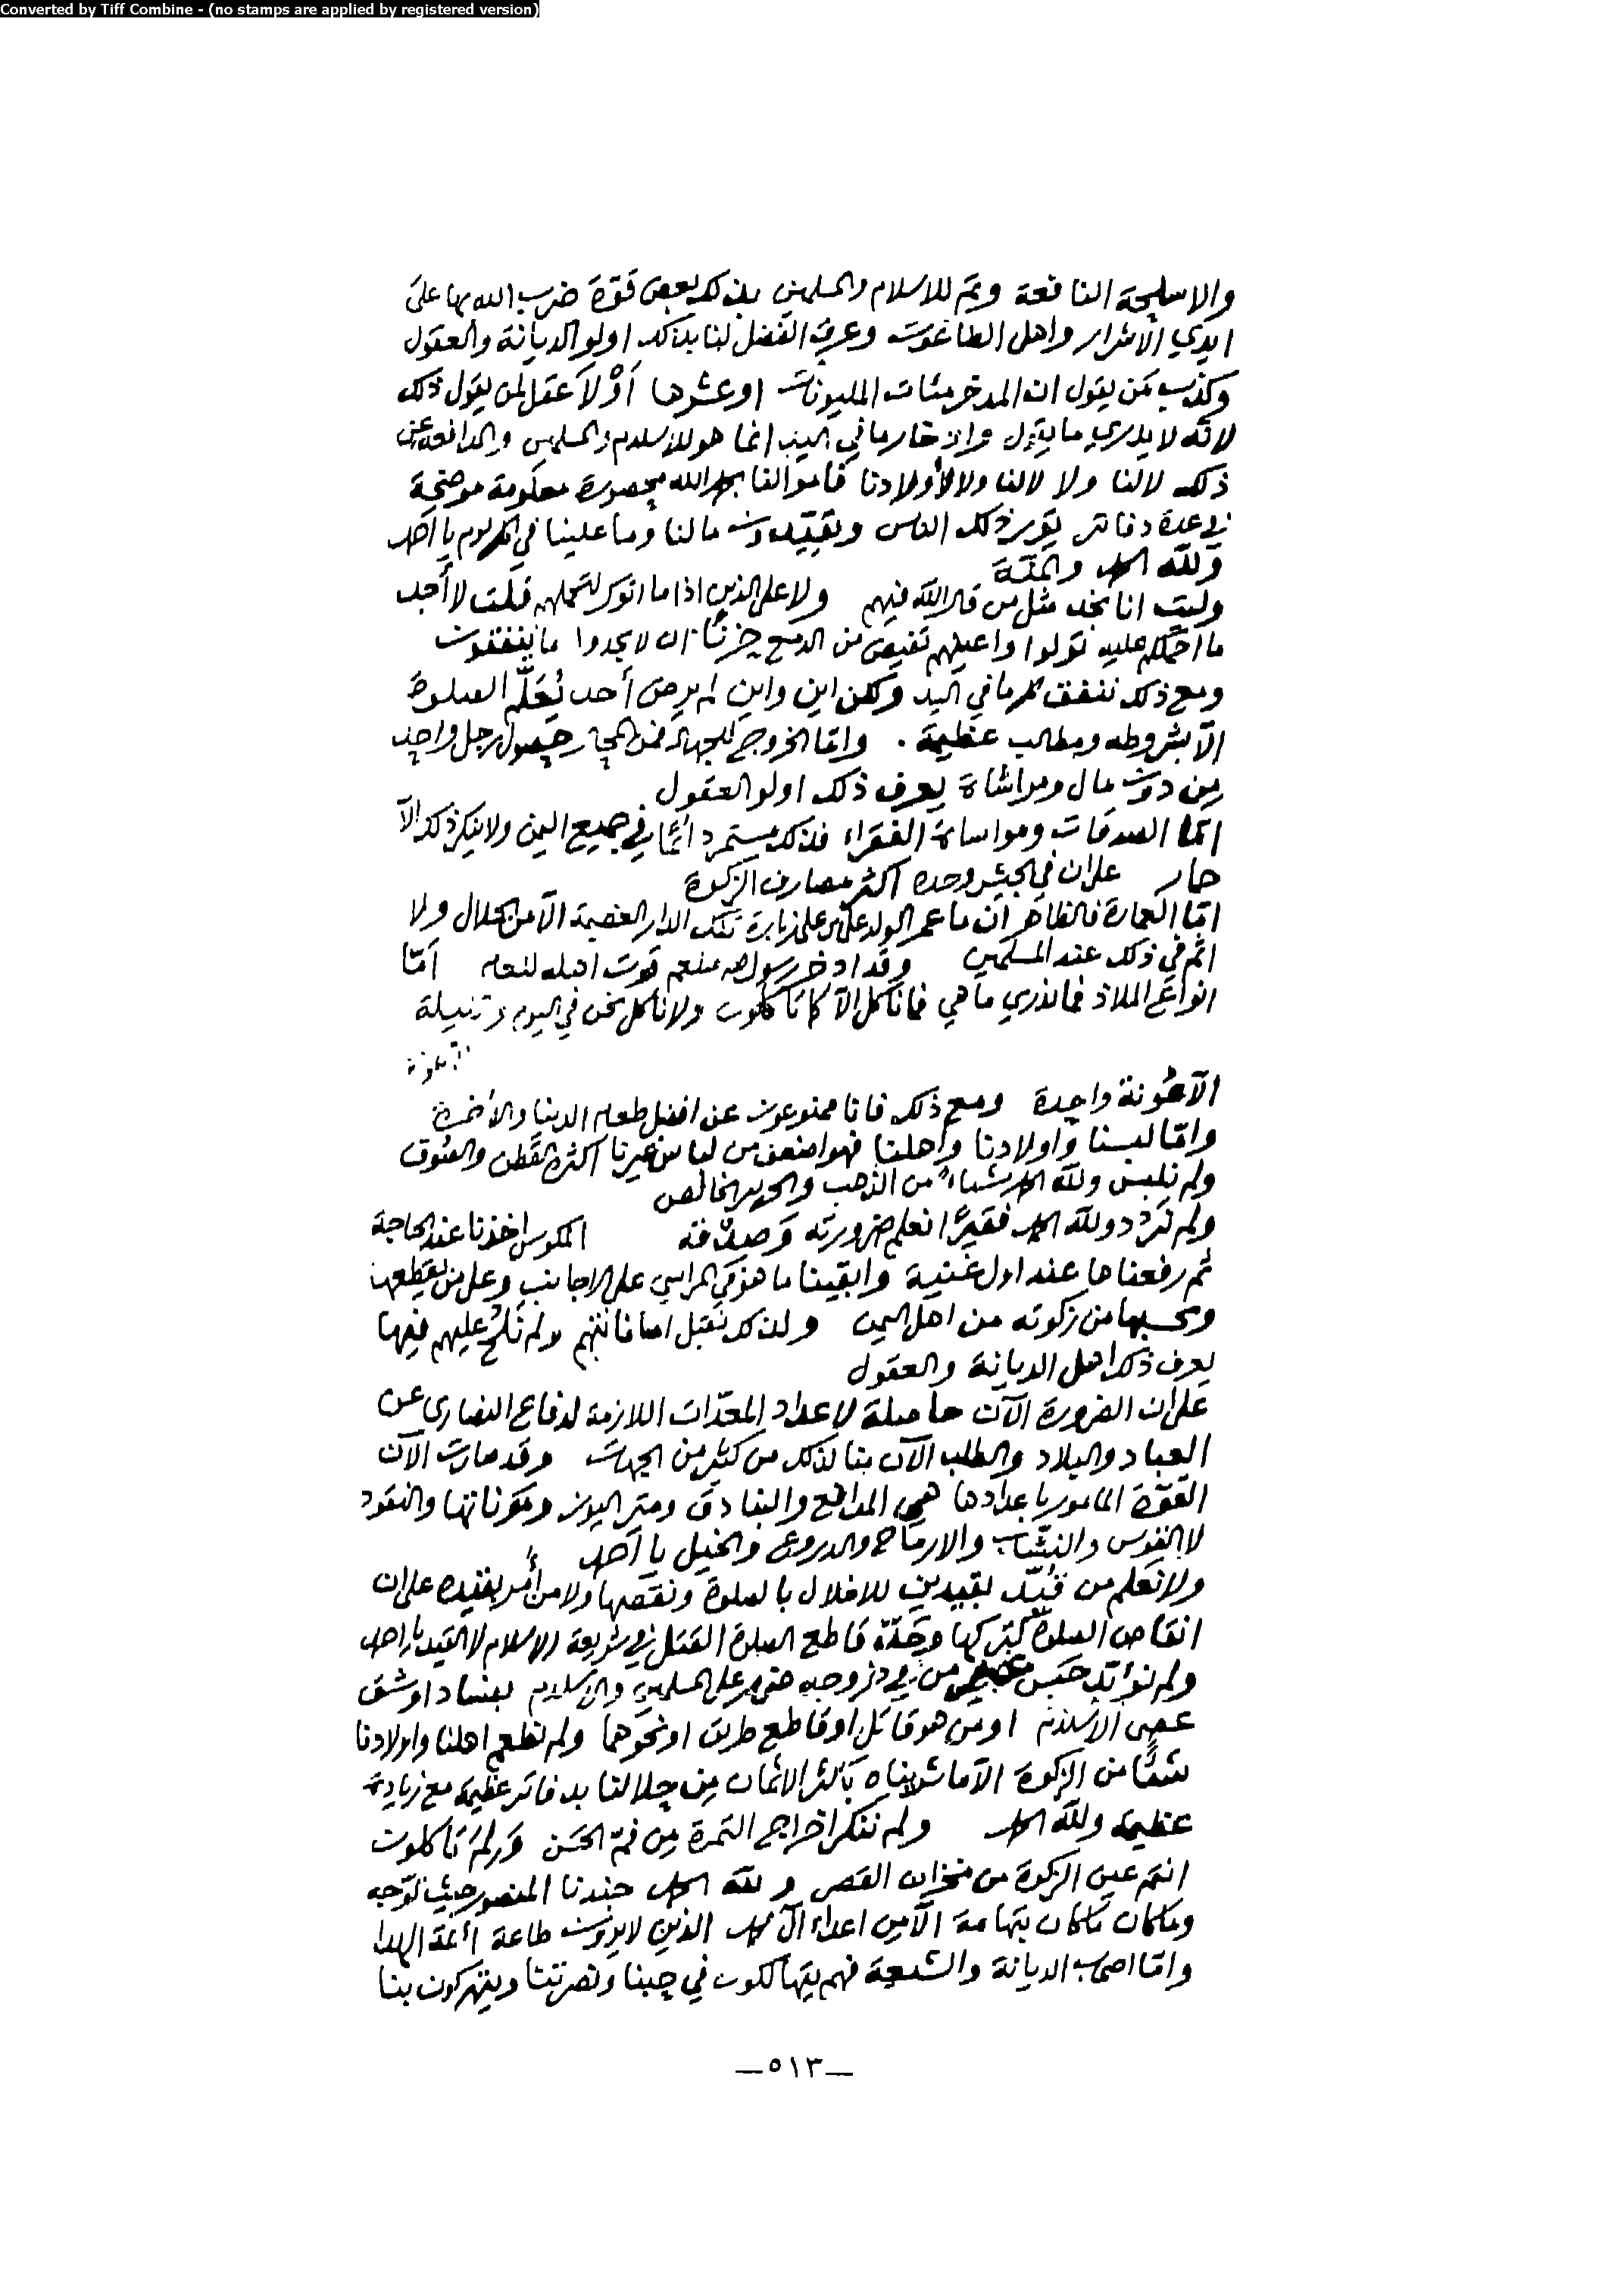 Converted by Tiff Combine - (no stamps are applied by registered version)
والاسلحة النافعة وتم للاسلام والمسلمين بذلك بعض قوة ضرب الله بها على
ايدي الاشرار واهل الطاغوت وعرف الفضل لنا بذلك اولو الديانة والعقول
وكذب من يقول ان المدخر مئات المليونات او عشرها اذ لا عقل لمن يقول ذلك
لانه لا يدري ما يقول وادخار ما في اليد انما هو للاسلام والمسلمين والمدافعة عن
ذلك لا لنا ولا لالنا ولا لاولادنا فاموالنا بحمد الله محصورة معلومة موضحة
في عدة دفاتر يحرر ذلك الناس ويقيدون ما لنا وما علينا في كل يوم يا احمد
ولله الحمد والمنة
وليت انا نجد مثل من قال الله فيهم ولا على الذين اذا ما اتوك لتحملهم قلت لا أجد
ما احملكم عليه تولوا واعينهم تفيض من الدمع حزنًا ان لا يجدوا ما ينفقون
ومع ذلك ننفق كل ما في اليد ولكن اين واين لم يرض أحد يُعَلّم الصلوة
الّا بشروطه ومطالب عظيمة . وامّا الخروج للجهاد فمن المحال حصول رجل واحد
مِن دون مال ومراشاة يعرف ذلك اولو العقول
امّا الصدقات ومواساة الفقراء فذلك مستمر دائمًا في جميع اليمن ولا ينكر ذلك الّا
حمار على ان في الجيش وحده اكثر مصارف الزكوة
امّا العمارة فالظاهر أن ما عمر الولد علي بن علي زبارة تلك الدار الفخيمة الّا من الحلال ولا
اثم في ذلك عند المسلمين وقد ادخر رسول الله صلعم قوت اهله لعام أمّا
انواع الملاذ فما ندري ما هي فما نأكل الّا كما تأكلون ولا نأكل نحن في اليوم وتنيلة
الّا مُونة واحدة ومع ذلك فانا ممنوعون عن افضل طعام الدنيا والأخرة
وامّا لبسنا واولادنا وأهلنا فهو اضعف من لباس غيرنا اكثره القطن والصوف
ولم نلبس ولله الحمد شياءً من الذهب والحرير الخالص
ولم نَرُدّ ولله الحمد فقيرًا نعلم ضرورته وصدقه المكوس اخذنا عند الحاجة
ثم رفعناها عند اول غنية وابقينا ما هو في المراسي على الاجانب وعلى من يقطعها
ويحسبها من زكوته من اهل اليمن ولذلك نقبل اضافاتهم ولم نلح عليهم فيها
يعرف ذلك اهل الديانة والعقول
على ان الضرورة الآن حاصلة لاعداد المعدّات اللازمة لدفاع النصارى عن
العباد والبلاد والطلب الآن بنا لذلك من كثير من الجهات وقد صارت الآن
القوّة المامور باعدادها هي المدافع والبنادق ومتر اليوز ومكوناتها والنقود
لا القوس والنشّاب والارماح والدروع والخيل يا احمد
ولا نعلم من قُيّد بقيدين للاخلال بالصلوة ونقصها ولا من أُمر بقيده على ان
انقاص الصلوة كتركها وحَدّ قاطع الصلوة القتل في شريعة الاسلام لا القيد يا احمد
ولم نؤبّد حَبس من في خروجه ضرر على المسلمين والاسلام بفساد او شق
عصى الاسلام او من هو قاتل او قاطع طريق او نحوهما ولم نطعم اهلنا واولادنا
شيئًا من الزكوة الّا ما شريناه باكثر الاثمان مِن حلالنا بدفاتر عظيمة مع زيادة
عظيمة ولله الحمد ولم ننكر اخراج التمرة مِن فم الحسَن وَلِمَ تاكلون
انتم عين الزكوة من مخزان القصر ولله الحمد جندنا المنصور حيث توجه
وما كان ما كان بتهامة الّا من اعداء آل محمد الذين لا يرون طاعة ائمة الهدا
وامّا اصحاب الديانة والشيعة فهم يتهالكون في حبنا ونصرتنا ويتبركون بنا
—٥١٣—